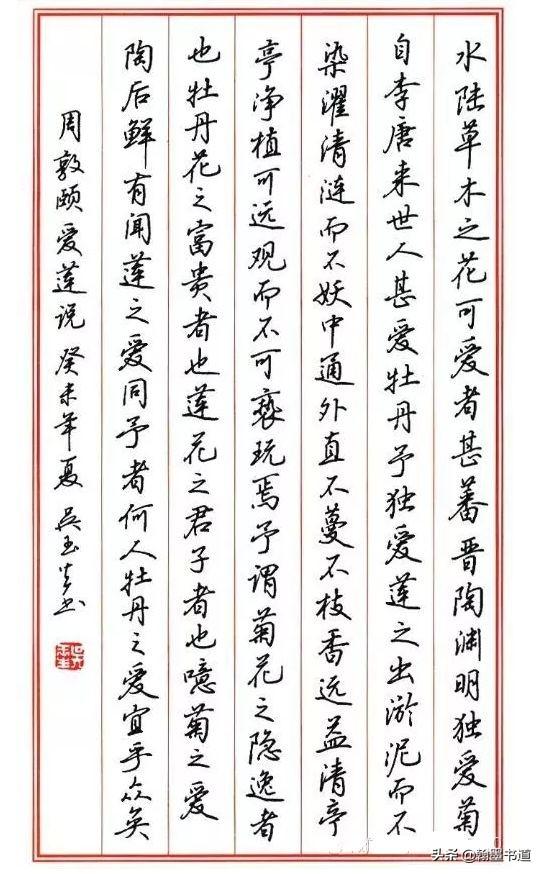 水陆草木之花可爱者甚蕃晋陶渊明独爱菊
自李唐来世人甚爱牡丹予独爱莲之出淤泥而不
染濯清涟而不妖中通外直不蔓不枝香远益清亭
亭净植可远观而不可亵玩焉予谓菊花之隐逸者
也牡丹花之富贵者也莲花之君子者也噫菊之爱
陶后鲜有闻莲之爱同予者何人牡丹之爱宜乎众矣
周敦颐爱莲说癸未年夏吴玉生书
头条@翰墨书道